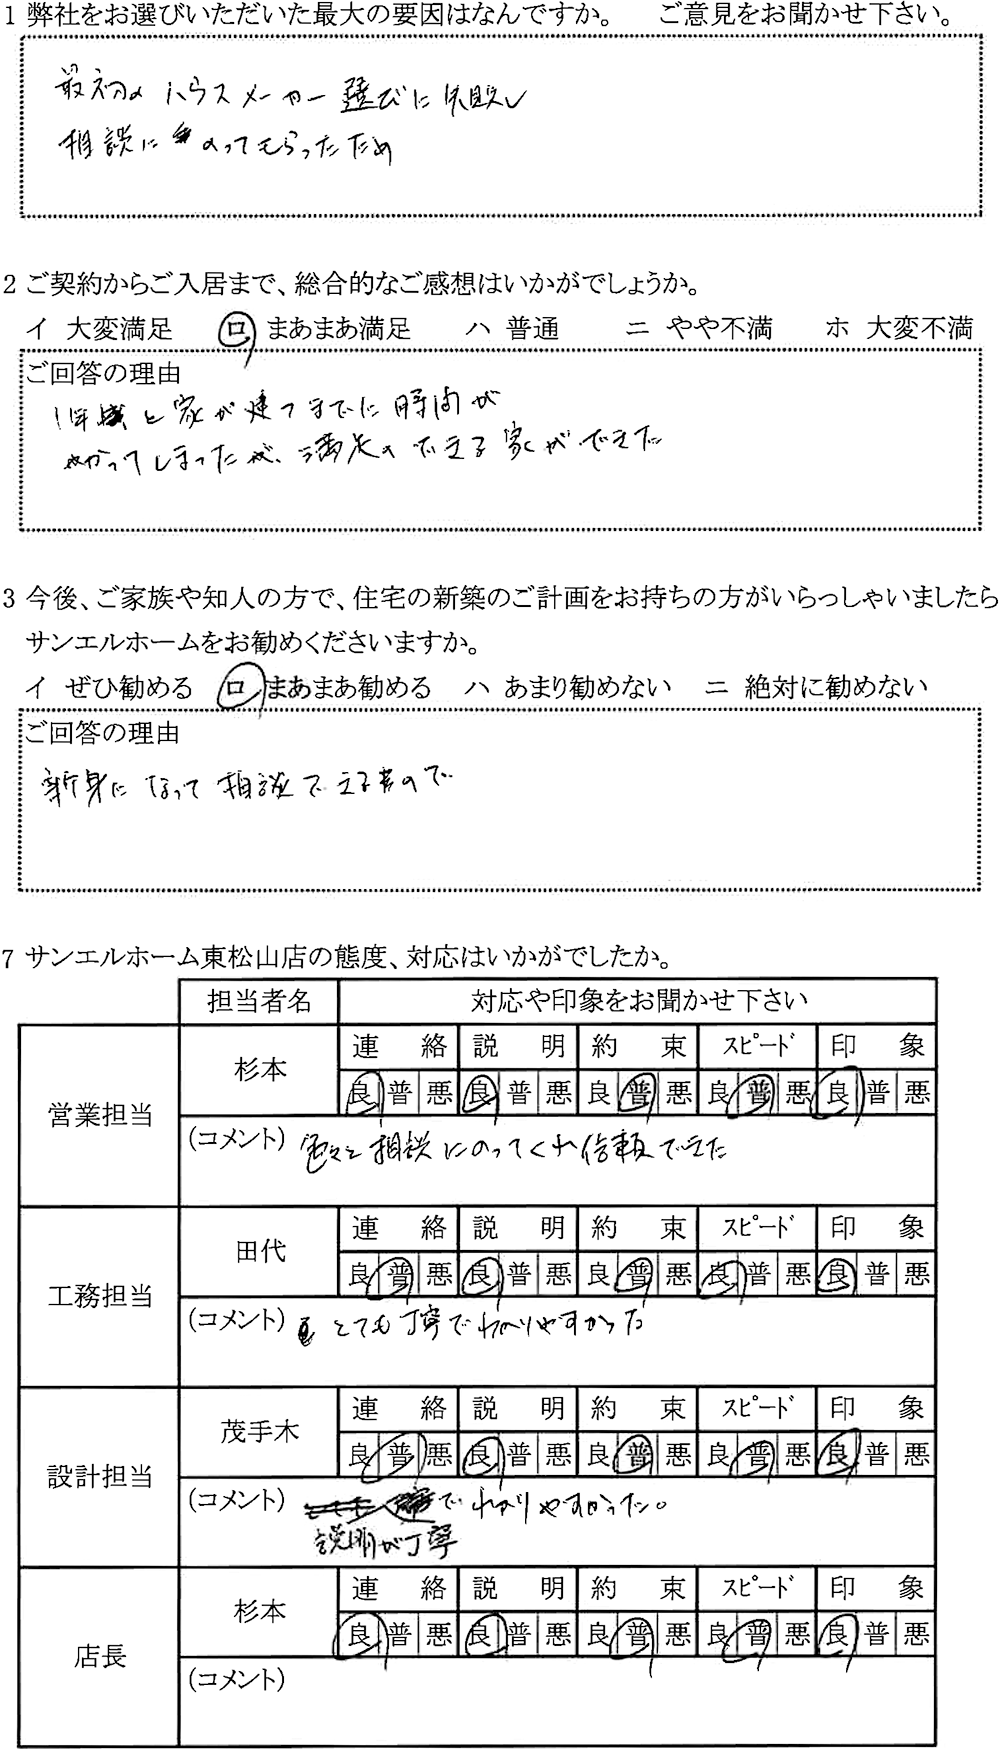 1 弊社をお選びいただいた最大の要因はなんですか。　ご意見をお聞かせ下さい。
最初のハウスメーカー選びに失敗し
相談にのってもらったため
2 ご契約からご入居まで、総合的なご感想はいかがでしょうか。
イ 大変満足　ロ まあまあ満足　ハ 普通　ニ やや不満　ホ 大変不満
ご回答の理由
と家が建つまでに時間が
かかってしまったが、満足のできる家ができた
3 今後、ご家族や知人の方で、住宅の新築のご計画をお持ちの方がいらっしゃいましたら
サンエルホームをお勧めくださいますか。
イ ぜひ勧める　ロ まあまあ勧める　ハ あまり勧めない　ニ 絶対に勧めない
ご回答の理由
親身になって相談できるので
7 サンエルホーム東松山店の態度、対応はいかがでしたか。
担当者名　対応や印象をお聞かせ下さい
営業担当　杉本　連絡　説明　約束　スピード　印象
良 普 悪　良 普 悪　良 普 悪　良 普 悪　良 普 悪
(コメント) 色々と相談にのってくれ信頼できた
工務担当　田代　連絡　説明　約束　スピード　印象
良 普 悪　良 普 悪　良 普 悪　良 普 悪　良 普 悪
(コメント) とても丁寧でわかりやすかった
設計担当　茂手木　連絡　説明　約束　スピード　印象
良 普 悪　良 普 悪　良 普 悪　良 普 悪　良 普 悪
(コメント) でわかりやすかった。
説明が丁寧
店長　杉本　連絡　説明　約束　スピード　印象
良 普 悪　良 普 悪　良 普 悪　良 普 悪　良 普 悪
(コメント)